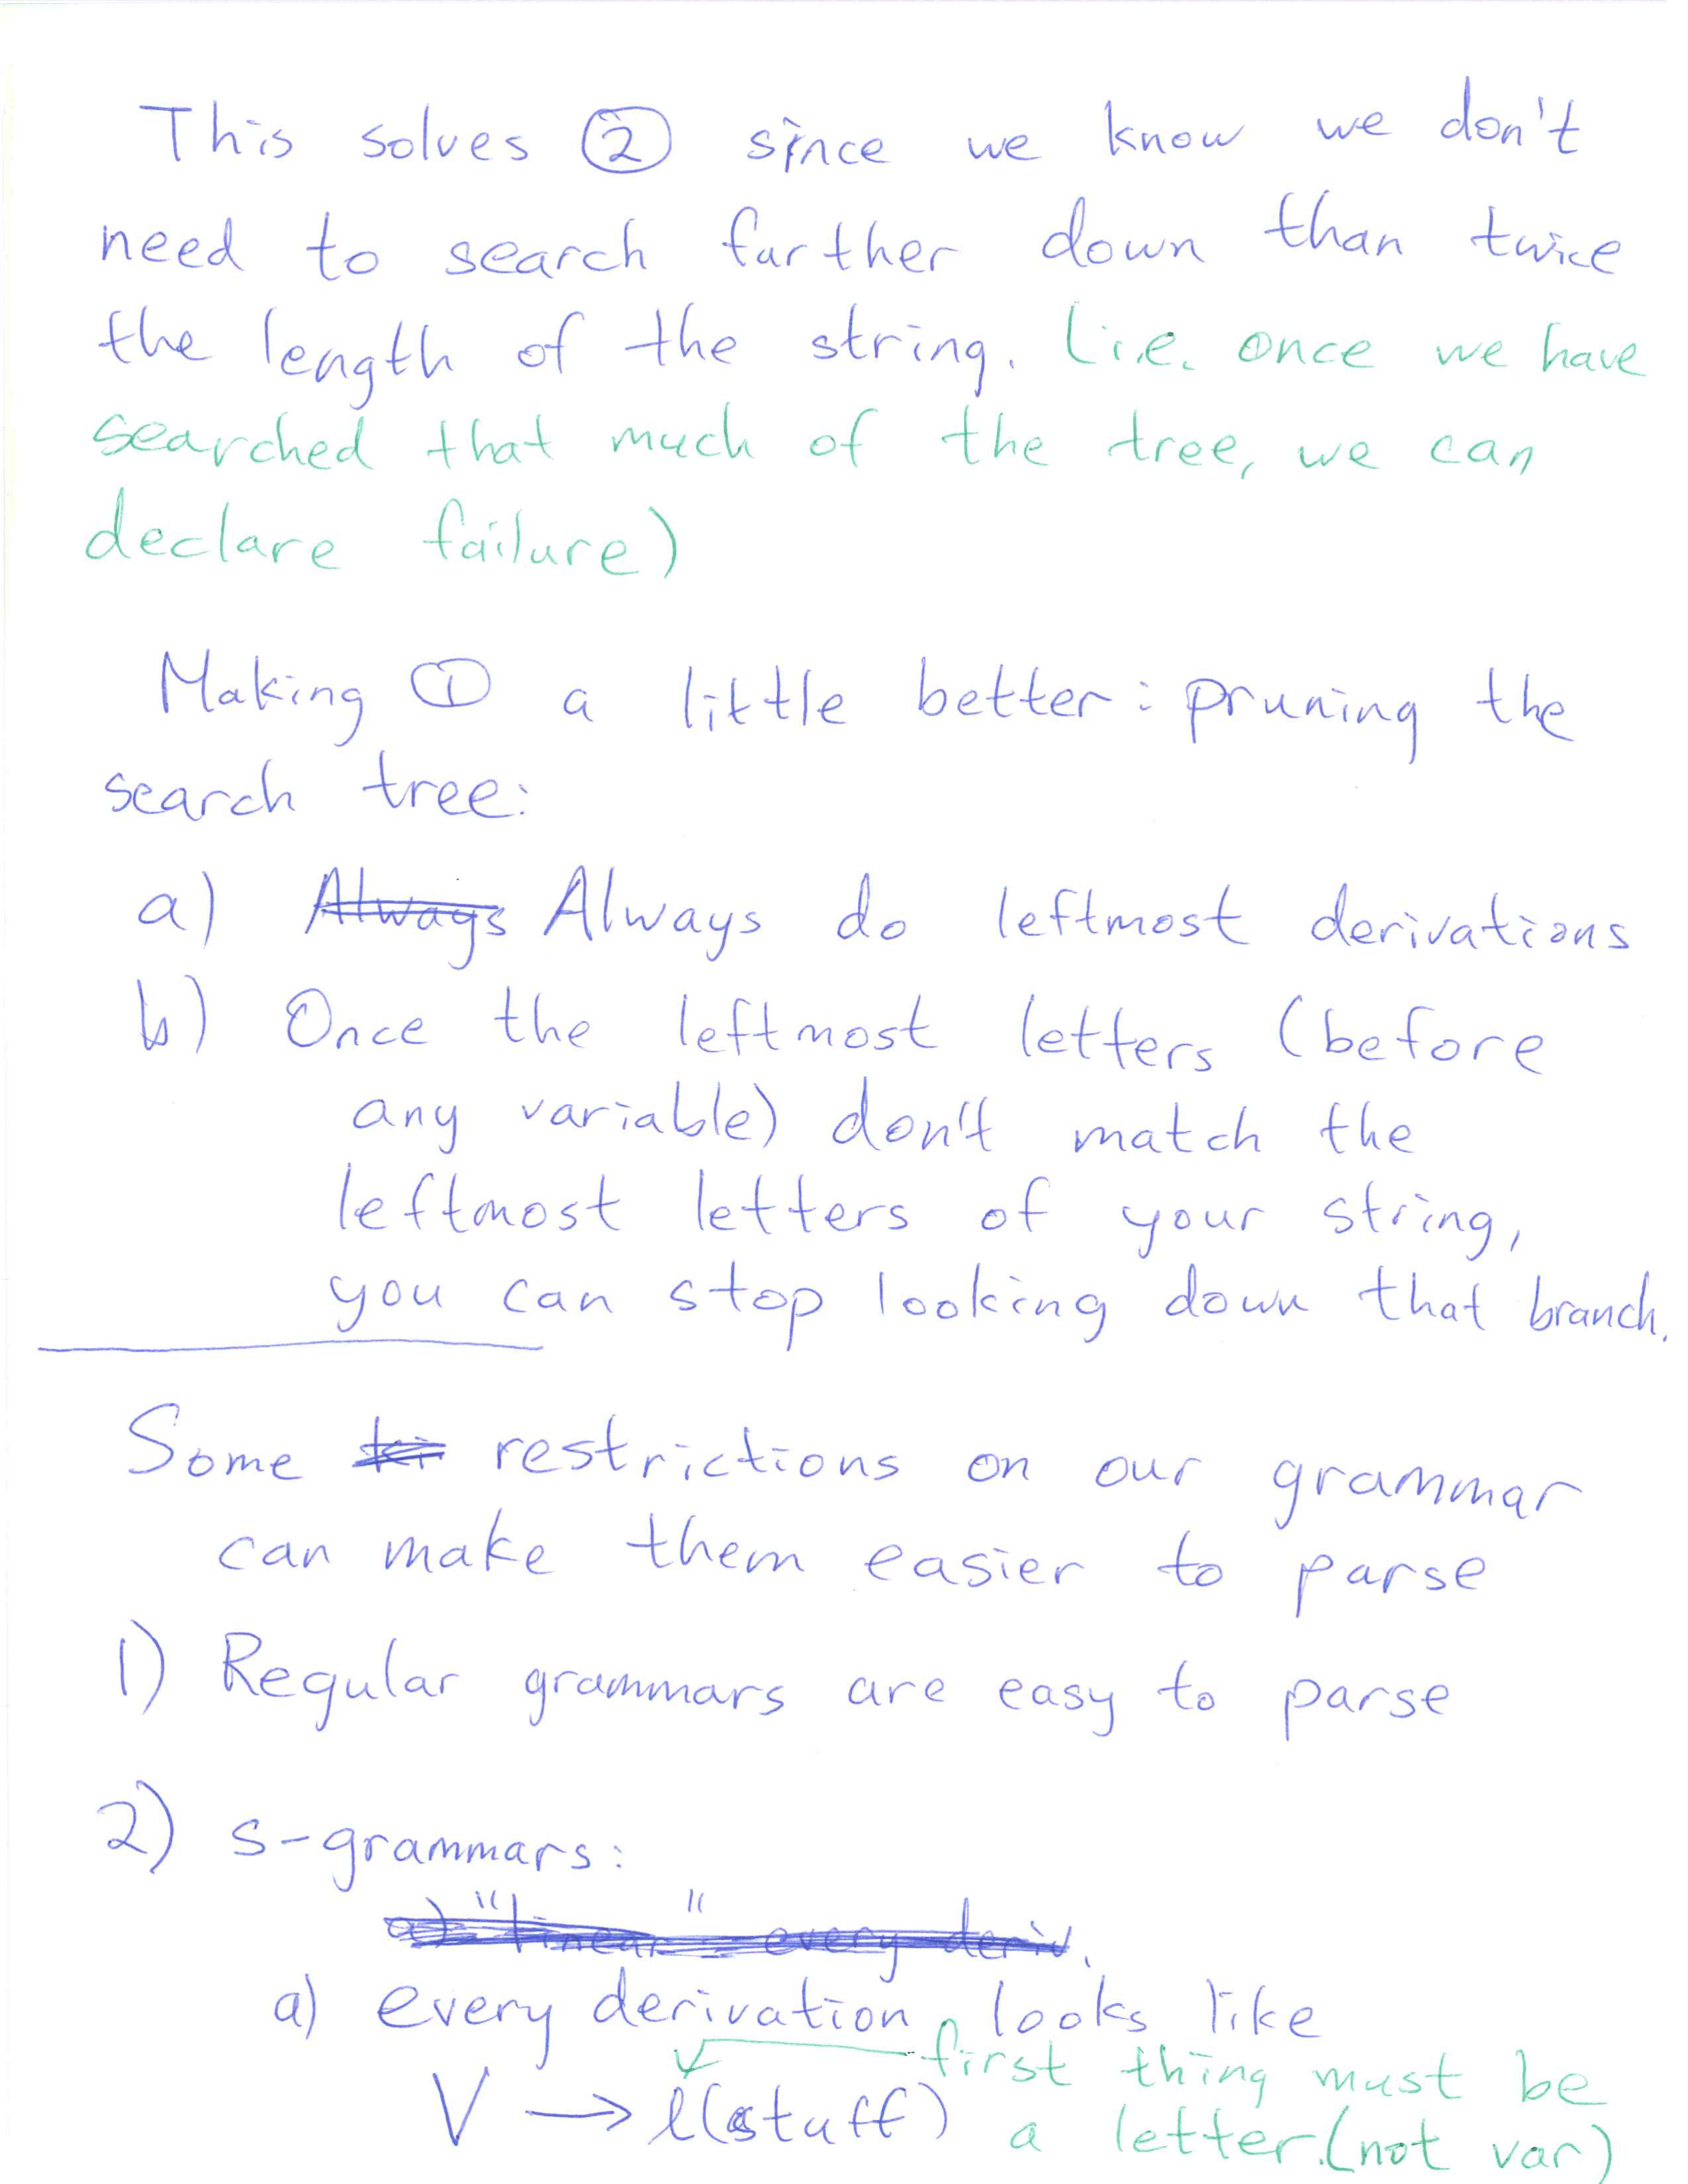 This solves ② since we know we don't
need to search further down than twice
the length of the string. (i.e. once we have
searched that much of the tree, we can
declare failure)
Making ① a little better: pruning the
search tree:
a) Always Always do leftmost derivations
b) Once the leftmost letters (before
any variable) don't match the
leftmost letters of your string,
you can stop looking down that branch.
Some restrictions on our grammar
can make them easier to parse
1) Regular grammars are easy to parse
2) s-grammars:
a) "linear" every deriv.
a) every derivation looks like
first thing must be
V → l(stuff) a letter. (not var)